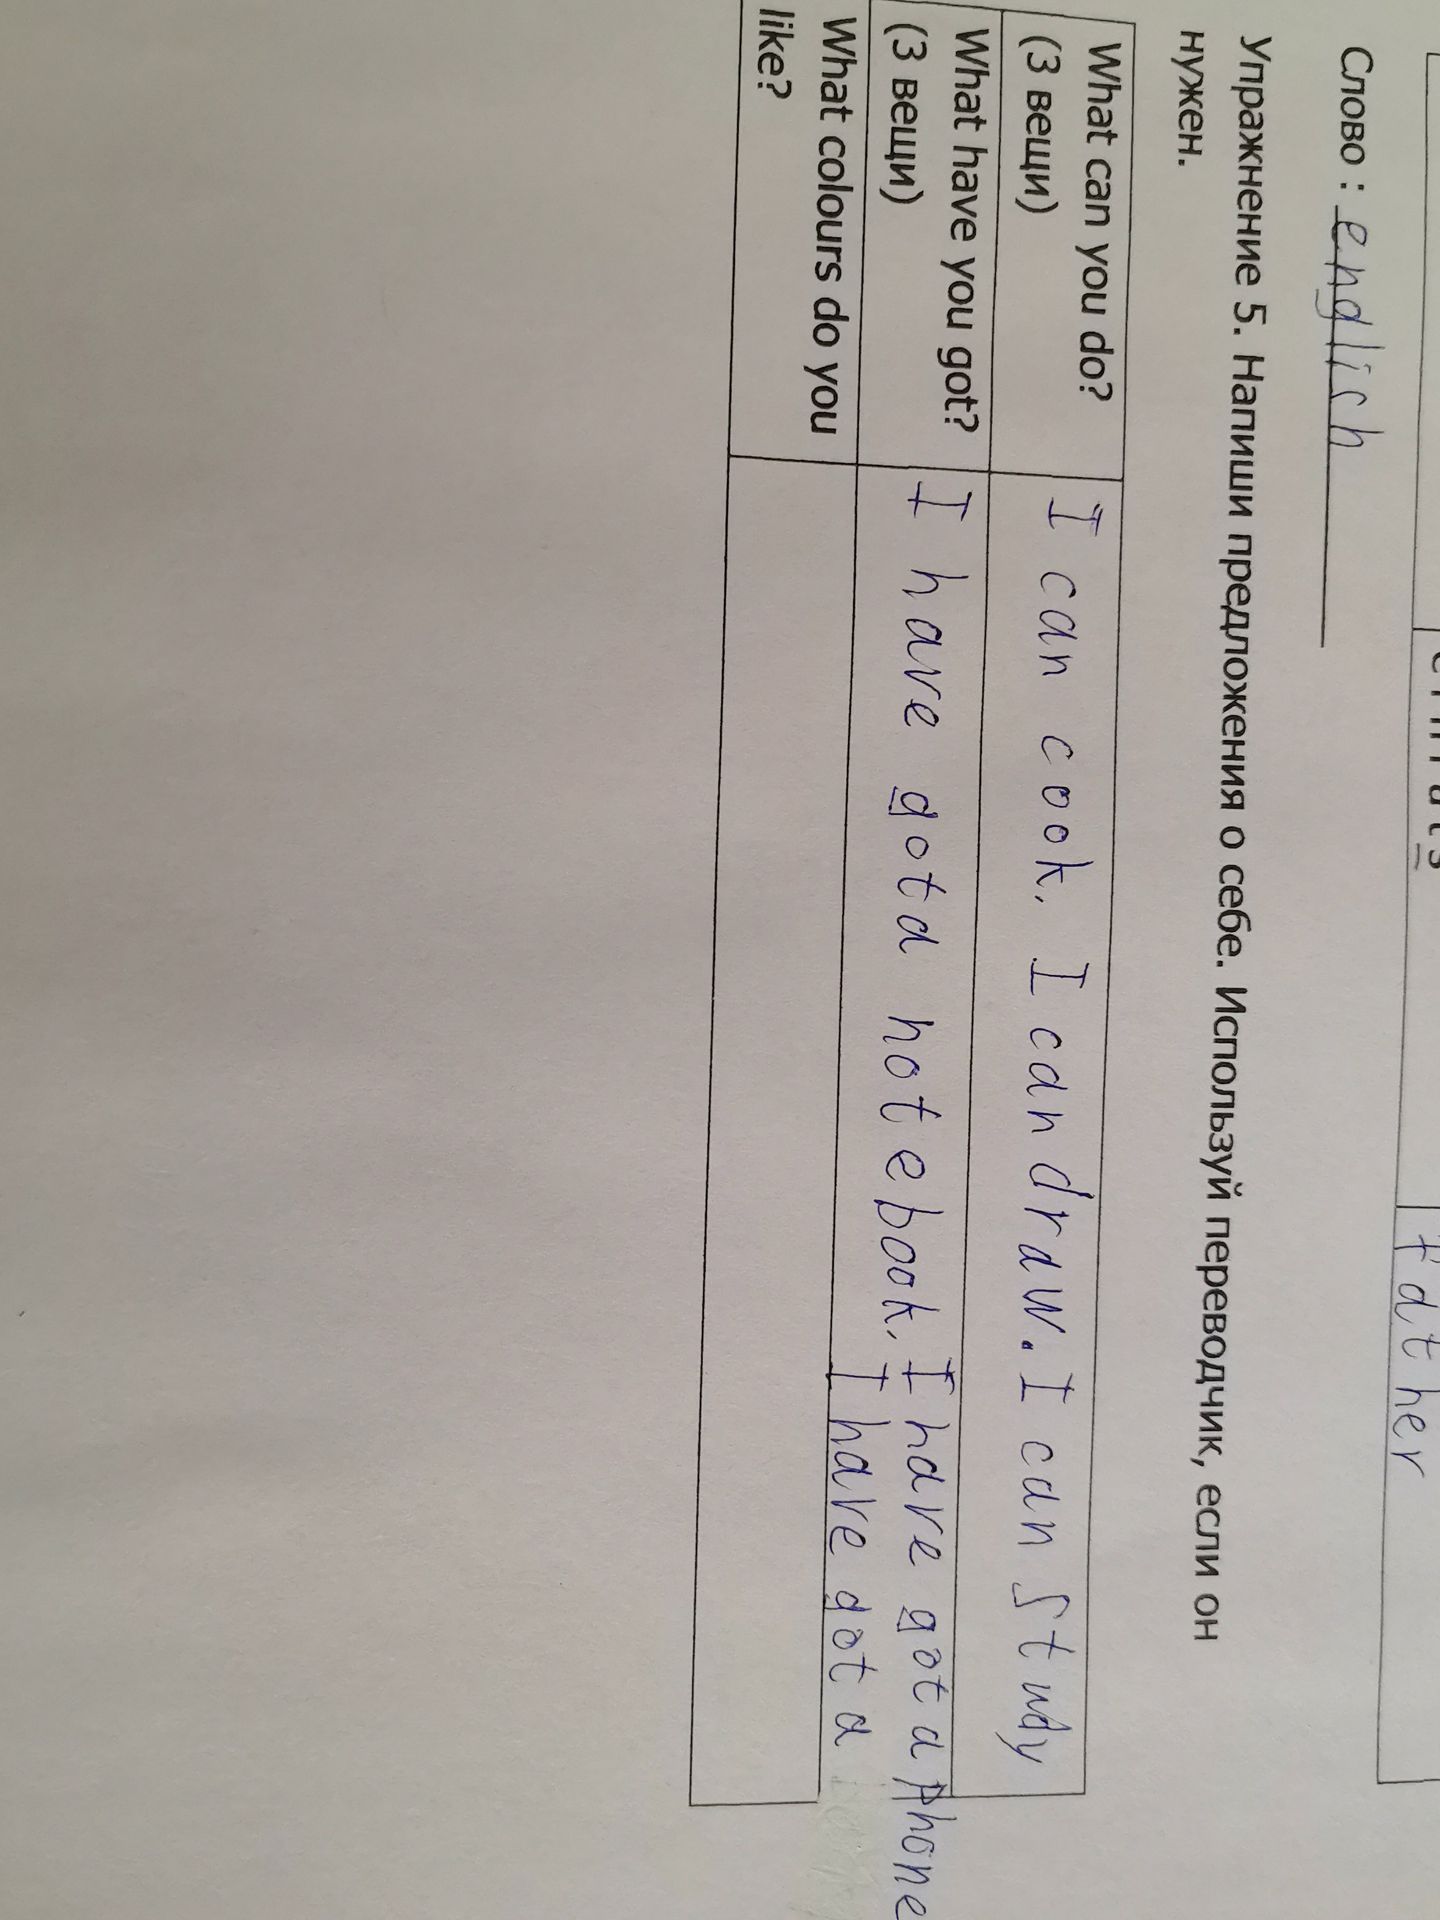 father
Слово : english
Упражнение 5. Напиши предложения о себе. Используй переводчик, если он
нужен.
What can you do?
(3 вещи)
I can cook. I can draw. I can study
What have you got?
(3 вещи)
I have got a notebook. I have got a Phone
I have got a
What colours do you
like?